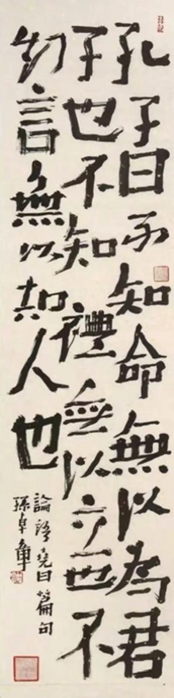 孔子曰不知命無以為君
子也不知禮無以立也不
知言無以知人也
論語堯曰篇句
孫